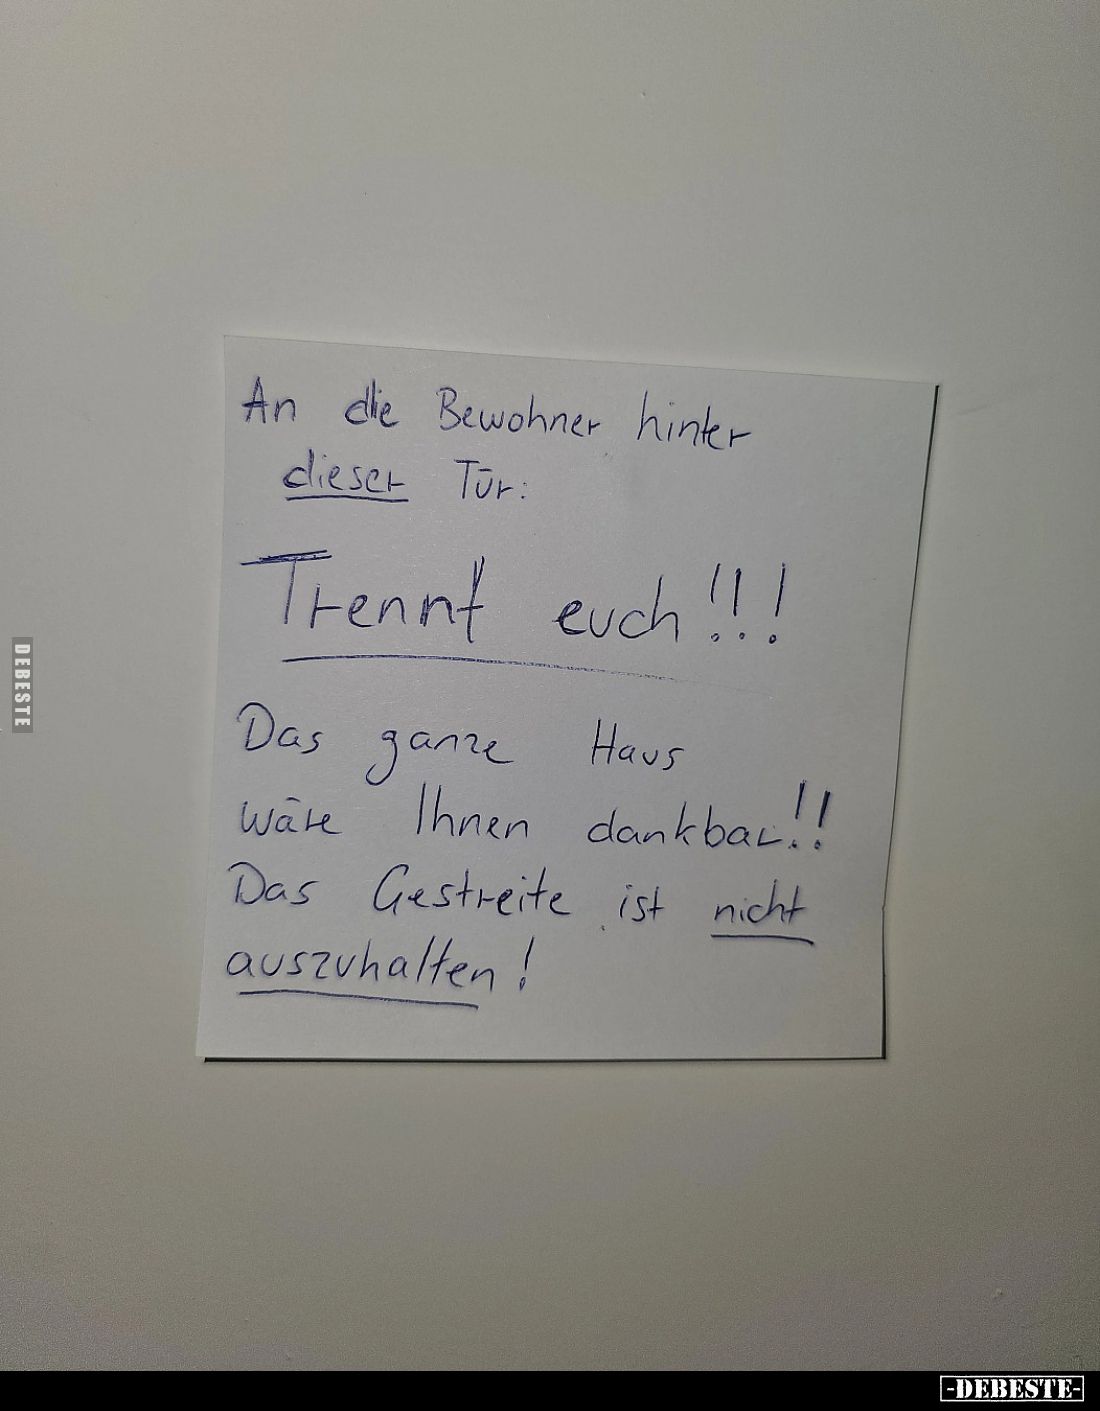 An die Bewohner hinter
dieser Tür:
Trennt euch!!!
Das ganze Haus
wäre Ihnen dankbar!!
Das Gestreite ist nicht
auszuhalten!
DEBESTE
-DEBESTE-